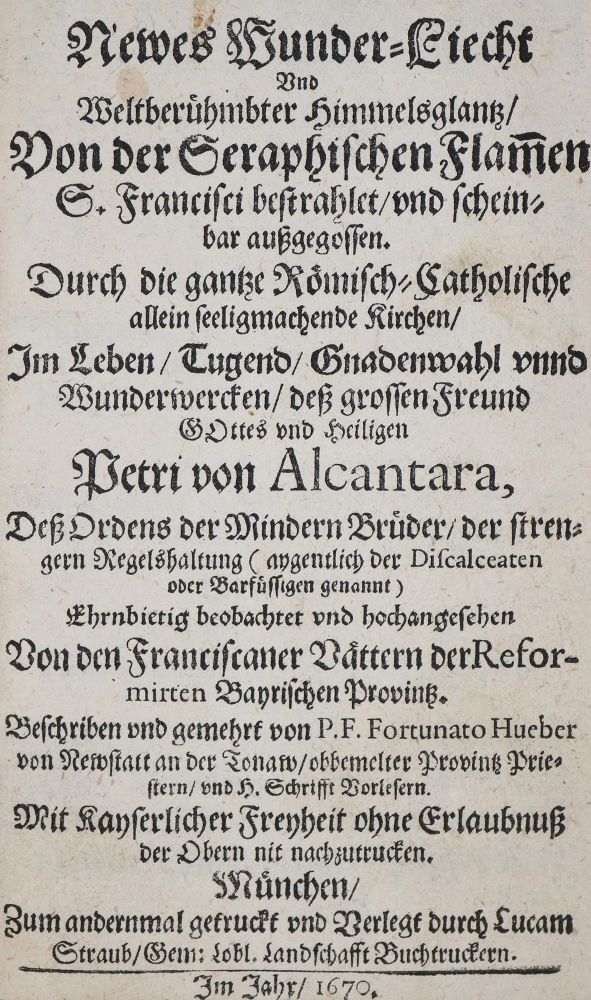 Newes Wunder-Liecht
Vnd
Weltberühmbter Himmelsglantz/
Von der Seraphischen Flam̃en
S. Francisci bestrahlet/vnd schein-
bar außgegossen.
Durch die gantze Römisch-Catholische
allein seeligmachende Kirchen/
Im Leben/ Tugend/ Gnadenwahl vnnd
Wunderwercken/ deß grossen Freund
GOttes vnd Heiligen
Petri von Alcantara,
Deß Ordens der Mindern Brüder/ der stren-
gern Regelshaltung ( aygentlich der Discalceaten
oder Barfüssigen genannt )
Ehrnbietig beobachtet vnd hochangesehen
Von den Franciscaner Vättern der Refor-
mirten Bayrischen Provintz.
Beschriben vnd gemehrt von P. F. Fortunato Hueber
von Newstatt an der Tonaw/obbemelter Provintz Prie-
stern/ vnd H. Schrifft Vorlesern.
Mit Kayserlicher Freyheit ohne Erlaubnuß
der Obern nit nachzutrucken.
München/
Zum andernmal getruckt vnd Verlegt durch Lucam
Straub/Gem: Lobl. Landschafft Buchtruckern.
Im Jahr/ 1670.